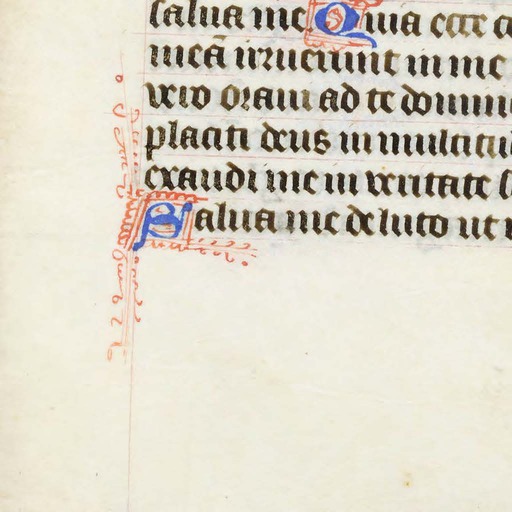 salua me Quia ecce c
meā irruerunt in me
vero oraui ad te domin
placiti deus in multitu
exaudi me in veritate s
Salua me de luto ut